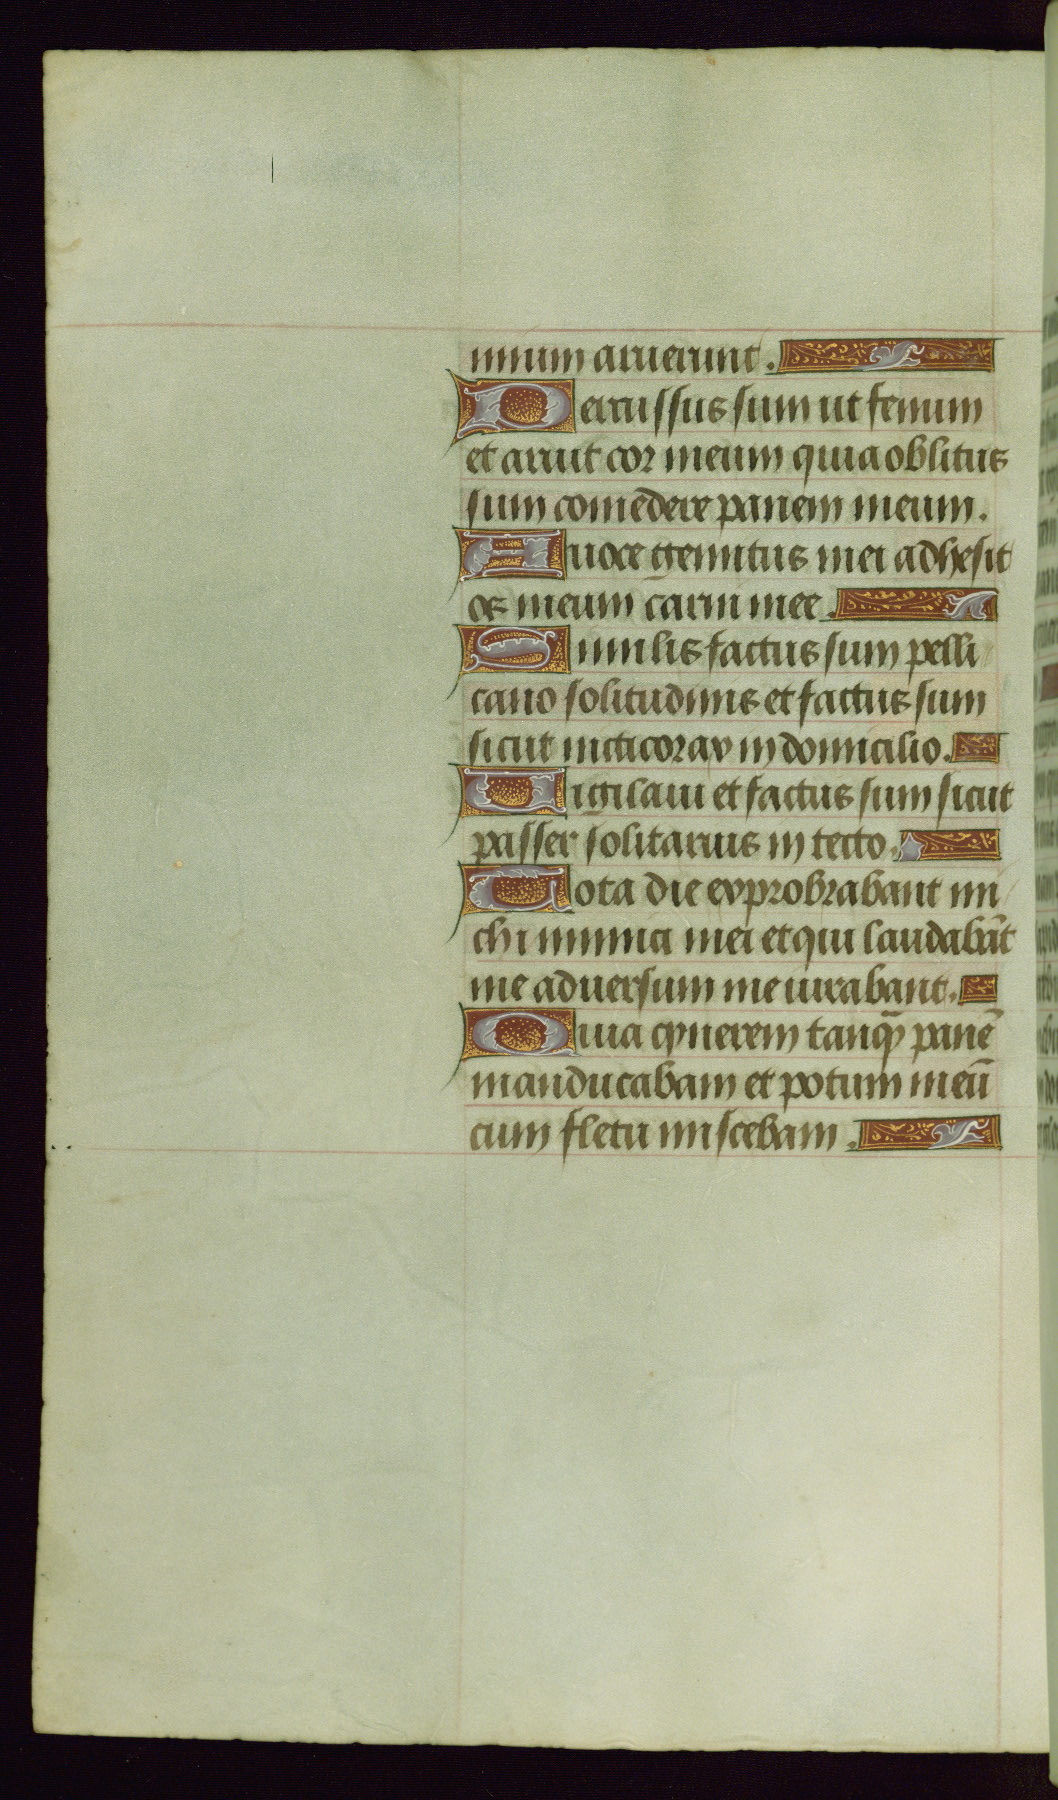 mium aruerunt.
Percussus sum ut fenum
et aruit cor meum quia oblitus
sum comedere panem meum.
A uoce gemitus mei adhesit
os meum carni mee.
Similis factus sum pelli
cano solitudinis et factus sum
sicut nicticorax in domicilio.
Vigilaui et factus sum sicut
passer solitarius in tecto.
Tota die exprobrabant mi
chi inimici mei et qui laudabāt
me aduersum me iurabant.
Quia cynerem tanqȝ panē
manducabam et potum meū
cum fletu miscebam.